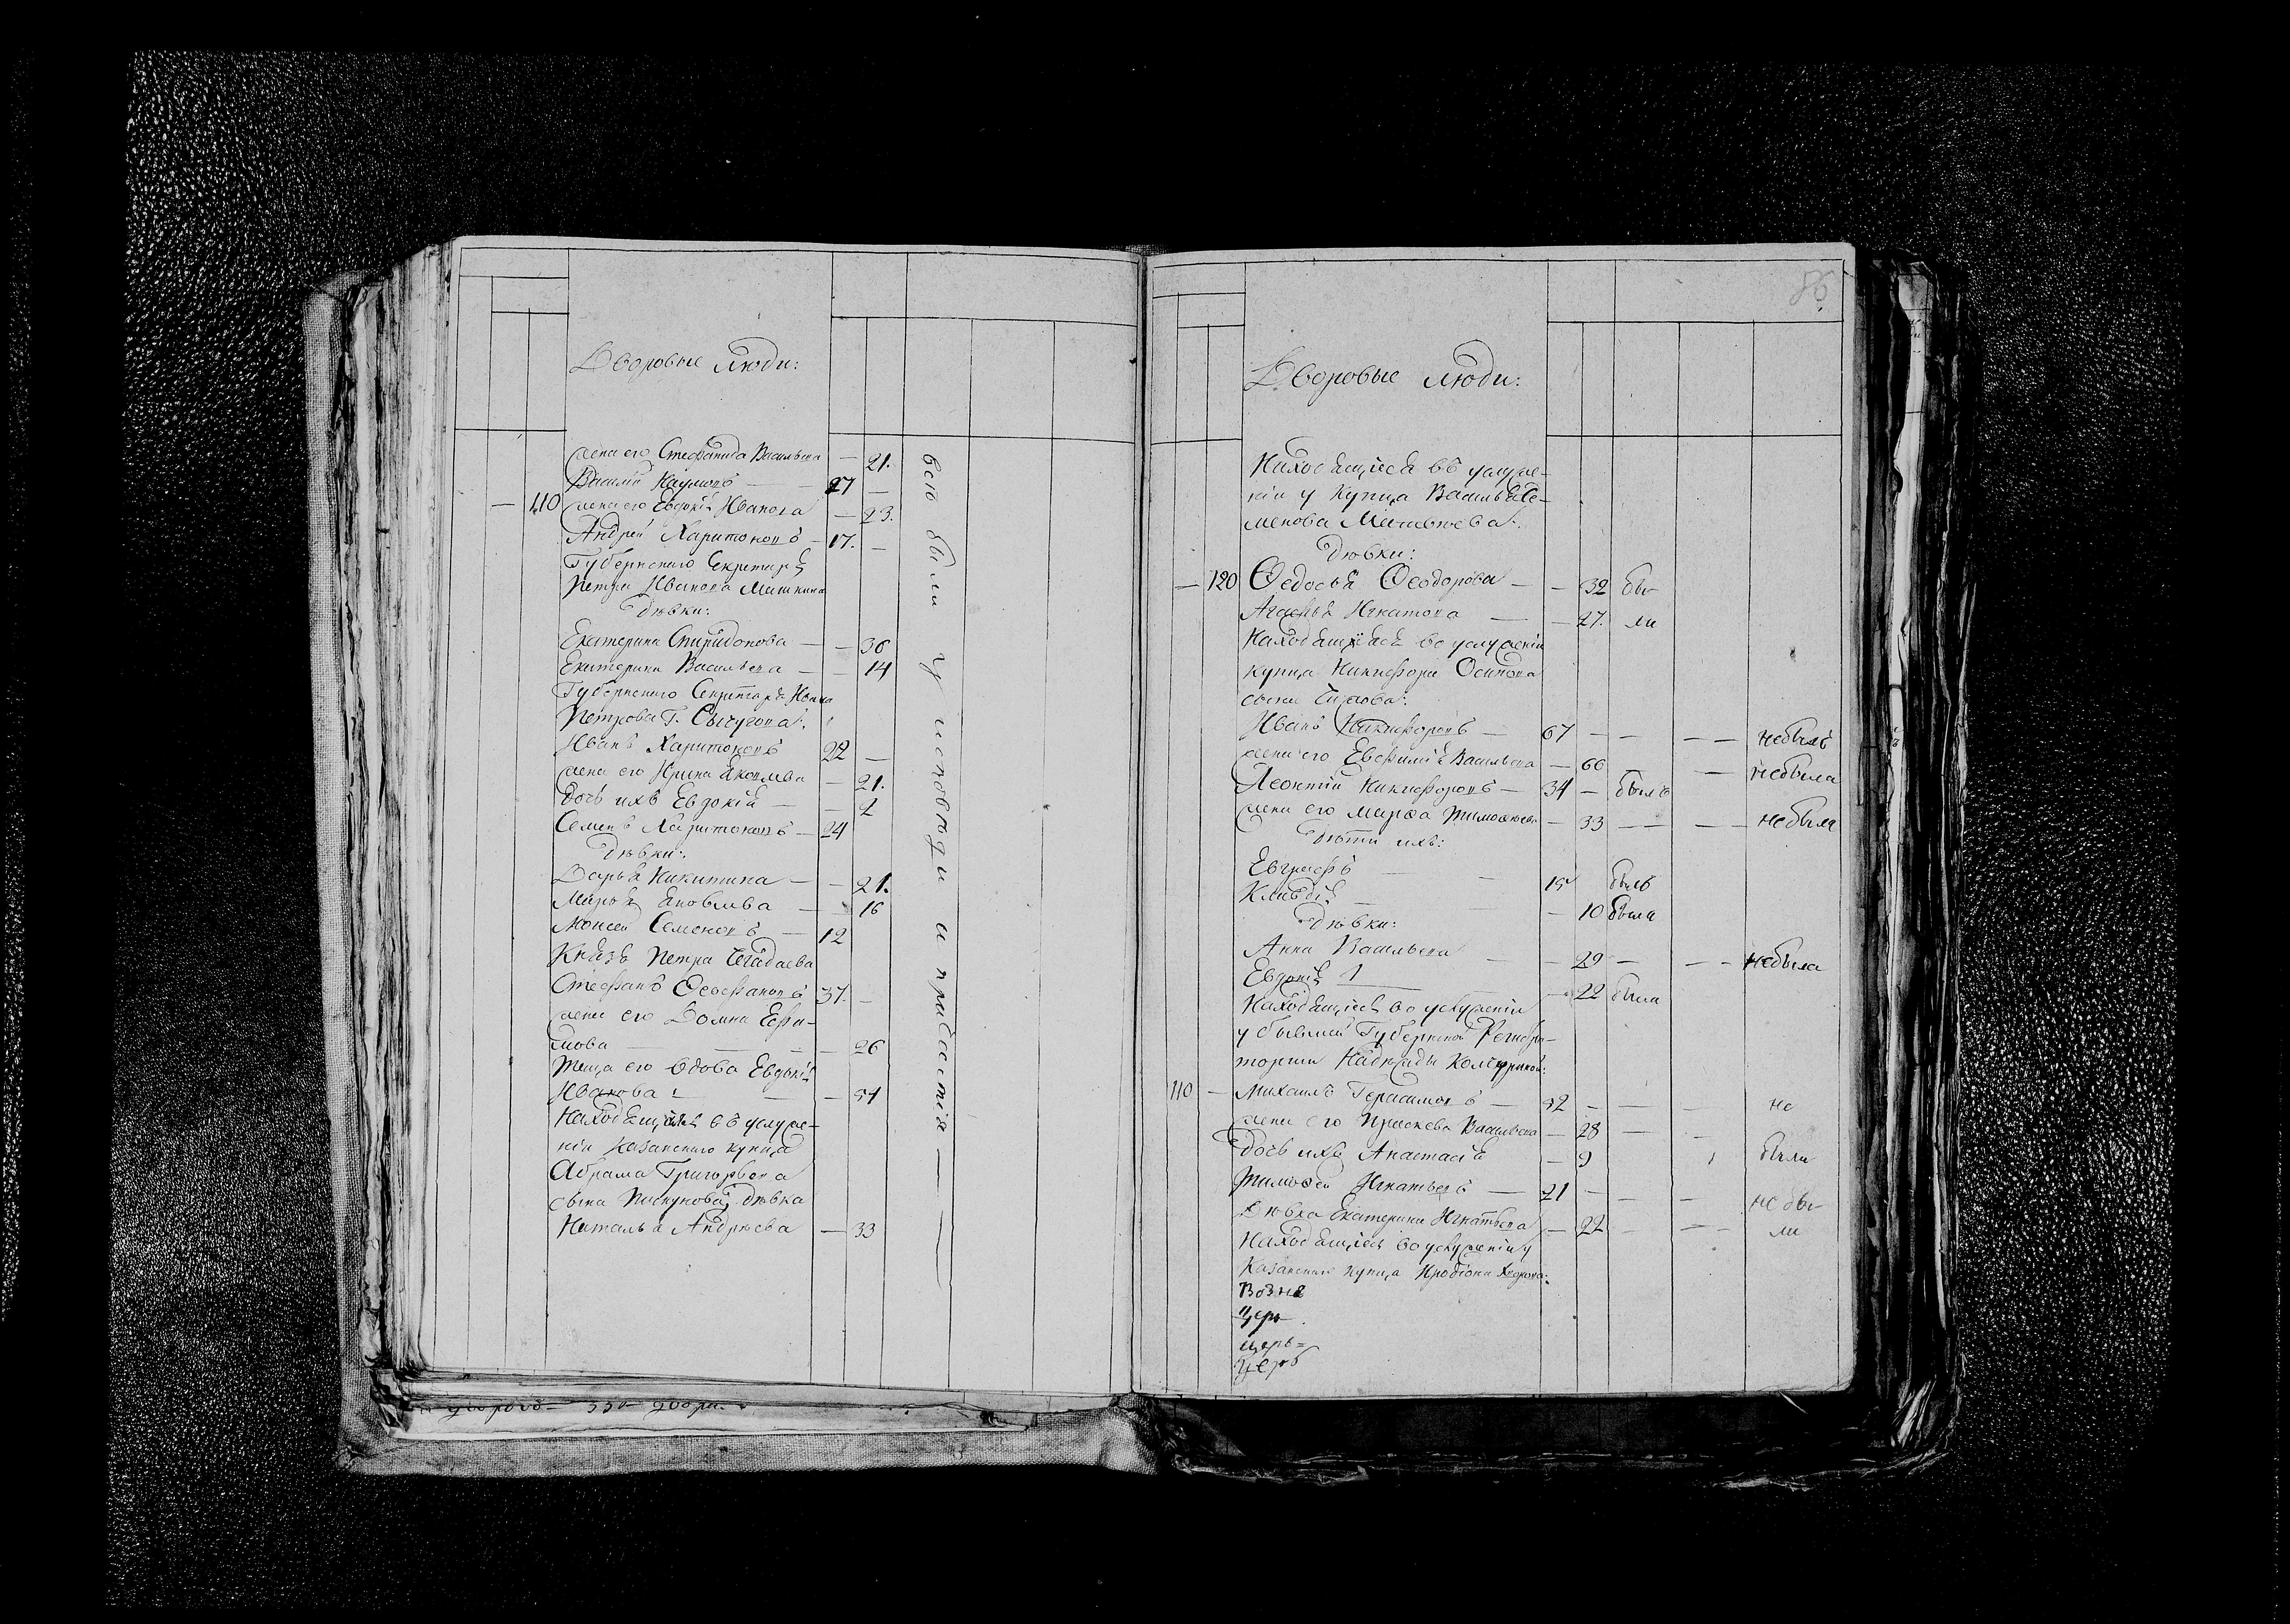 Дворовые люди:
жена его Стефанида Васильева — 21.
Василій Наумовъ — 27 —
— 110 жена его Евдокія Иванова — 23.
Андрей Харитоновъ — 17. —
Губернскаго Секретаря
Петра Иванова Машкина
Дѣвки:
Екатерина Спиридонова — — 36
Екатерина Васильева — — 14
Губернскаго Секретаря Ивана
Петрова Г. Сычугова:
Иванъ Харитоновъ 22 —
жена его Ирина Яковлева — 21.
дочь ихъ Евдокія — — 2
Семенъ Харитоновъ — 24
Дѣвки:
Дарья Никитина — — 21.
Марья Яковлева — — 16
Моисей Семеновъ — 12
Князя Петра Чегадаева
Стефанъ Феофановъ 37. —
жена его Домна Ефи-
мова — — 26
Теща его вдова Евдокія
Иванова — — 54
Находящіяся въ услуже-
ніи Казанскаго купца
Абрама Григорьева
сына Пискунова, дѣвка
Наталья Андреева — 33
всѣ были у исповѣди и причастія —
86
Дворовые люди:
Находящіеся въ услуже-
ніи у Купца Василья Се-
менова
Дѣвки:
— 120 Ѳедосья Ѳеодорова — — 32 бы-
Агафья Игнатова — — 27. ли
Находящіяся во услуженіи
купца Никифора Осипова
сына
Иванъ Никифоровъ — 67 — — — — небылъ
жена его Евфимія Васильева — 60 — — небыла
Леонтій Никифоровъ — 34 — былъ
жена его Марѳа Тимоѳеева — 33 — — — небыла
Дѣти ихъ:
Евграфъ — — 15 былъ
Клавдія — — 10 была
Дѣвки:
Анна Васильева — — 29 — — — небыла
Евдокія — — 22 была
Находящіеся во услуженіи
у бывшей Губернской Регистра-
торши Надежды
110 — Михаилъ Герасимовъ — 32 — — — не
жена его Прасковья Васильева — 28 — —
дочь ихъ Анастасія — 9 были
Тимоѳей Игнатьевъ — 21 — — — не бы-
Дѣвка Екатерина Игнатьева — 22 — — — ли
Находящіеся во услуженіи у
Казанскаго купца Иродіона
Возне
церк
церь=
Церь